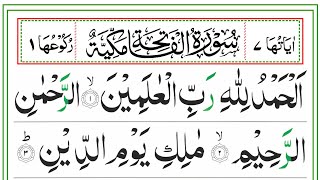 اٰیَاتُهَا ٧ سُوْرَةُ الْفَاتِحَةِ مَكِّیَّةٌ رُكُوْعُهَا ١
اَلْحَمْدُ لِلّٰهِ رَبِّ الْعٰلَمِیْنَ ۙ﴿١﴾ الرَّحْمٰنِ
الرَّحِیْمِ ۙ﴿٢﴾ مٰلِكِ یَوْمِ الدِّیْنِ ؕ﴿٣﴾